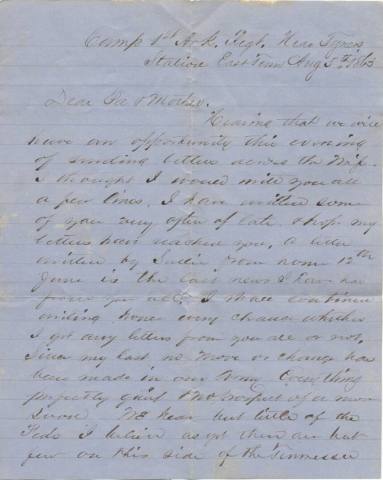 Camp 1st Ark. Regt. Near Tyners
Station East Tenn Aug 5th 1863
Dear Pa & Mother.
Hearing that we will
have an opportunity this evening
of sending letters across the Miss.
I thought I would write you all
a few lines. I have written some
of you very often of late & hope my
letters have reached you. A letter
written by from home 12th
June is the last news I have had
from you all. I shall continue
writing home every chance whether
I get any letters from you all or not.
Since my last no move or change has
been made in our Army Everything
perfectly quiet & no prospect of a move
soon. We hear but little of the
Feds I believe as yet there are but
few on this side of the Tennessee